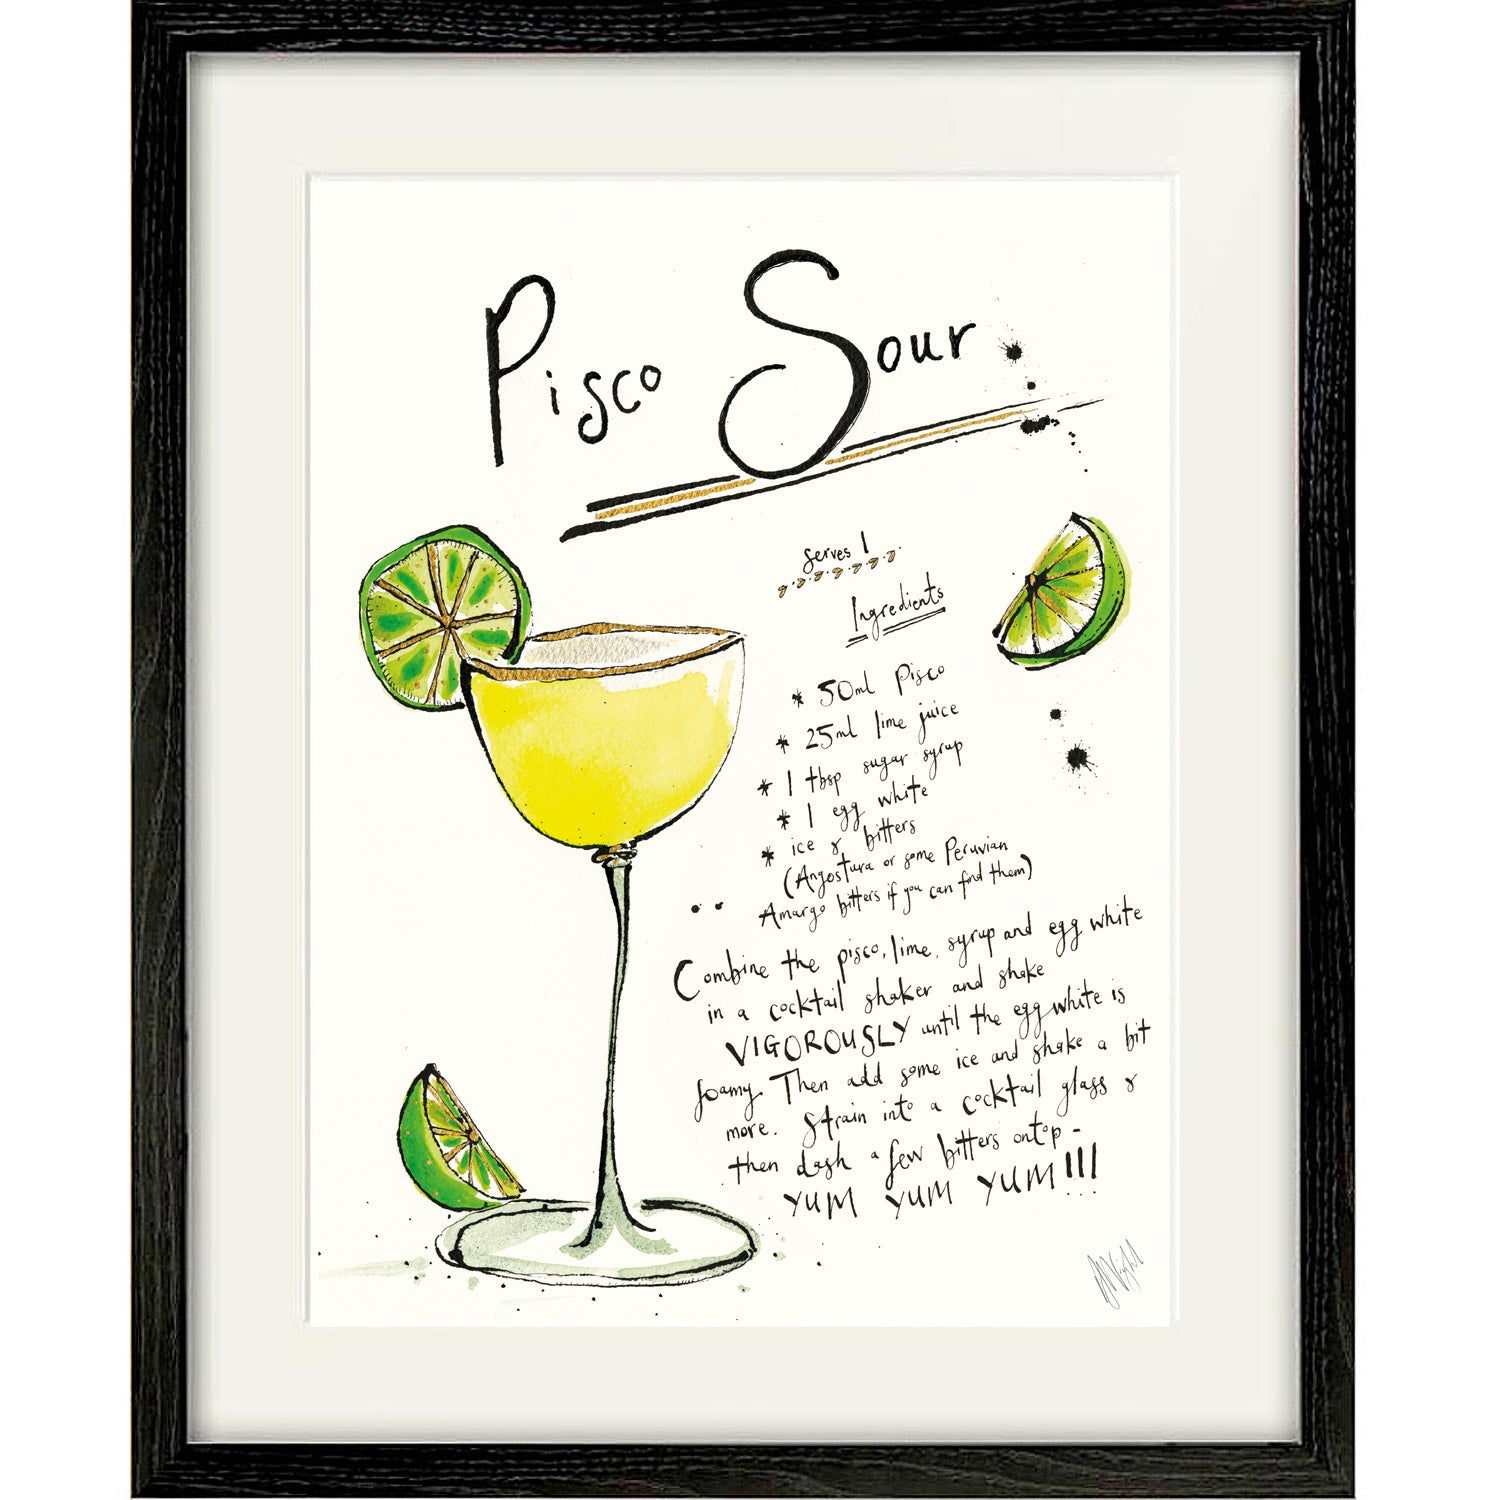 Pisco Sour
serves 1
Ingredients
* 50ml Pisco
* 25ml lime juice
* 1 tbsp sugar syrup
* 1 egg white
* ice & bitters
(Angostura or some Peruvian
Amargo bitters if you can find them)
Combine the pisco, lime, syrup and egg white
in a cocktail shaker and shake
VIGOROUSLY until the egg white is
foamy. Then add some ice and shake a bit
more. Strain into a cocktail glass &
then dash a few bitters on top -
YUM YUM YUM!!!